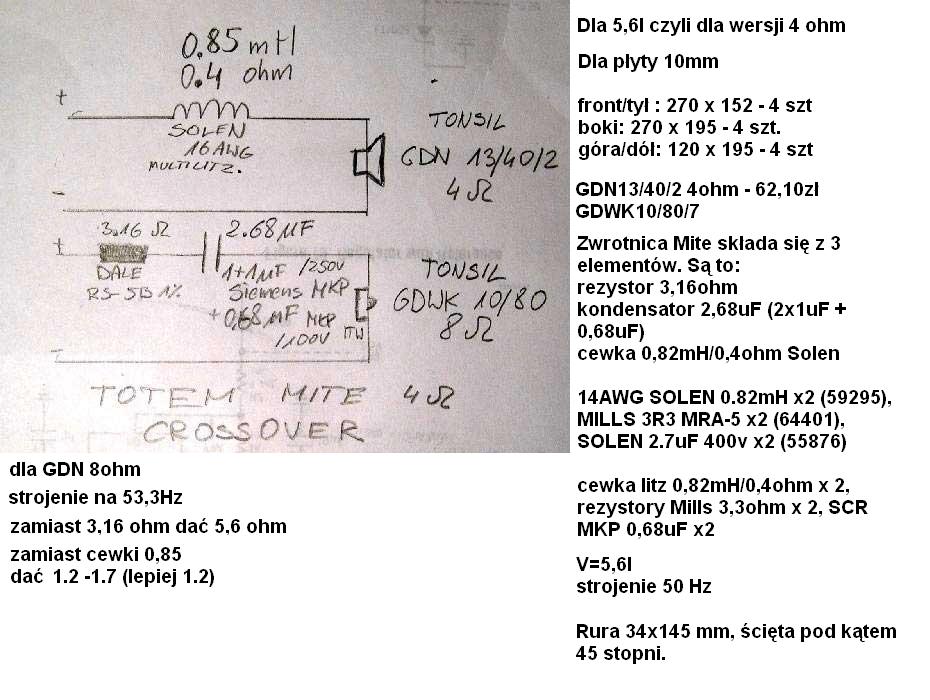 0.85 mH
0.4 ohm
+
SOLEN
16 AWG
MULTILITZ.
-
TONSIL
GDN 13/40/2
4Ω
+
3.16 Ω
DALE
RS-5B 1%
2.68μF
1+1μF /250V
Siemens MKP
+0,68μF MKP
/100V ITW
-
TONSIL
GDWK 10/80
8Ω
TOTEM MITE 4Ω
CROSSOVER
dla GDN 8ohm
strojenie na 53,3Hz
zamiast 3,16 ohm dać 5,6 ohm
zamiast cewki 0,85
dać 1.2 -1.7 (lepiej 1.2)
Dla 5,6l czyli dla wersji 4 ohm
Dla plyty 10mm
front/tył : 270 x 152 - 4 szt
boki: 270 x 195 - 4 szt.
góra/dół: 120 x 195 - 4 szt
GDN13/40/2 4ohm - 62,10zł
GDWK10/80/7
Zwrotnica Mite składa się z 3
elementów. Są to:
rezystor 3,16ohm
kondensator 2,68uF (2x1uF +
0,68uF)
cewka 0,82mH/0,4ohm Solen
14AWG SOLEN 0.82mH x2 (59295),
MILLS 3R3 MRA-5 x2 (64401),
SOLEN 2.7uF 400v x2 (55876)
cewka litz 0,82mH/0,4ohm x 2,
rezystory Mills 3,3ohm x 2, SCR
MKP 0,68uF x2
V=5,6l
strojenie 50 Hz
Rura 34x145 mm, ścięta pod kątem
45 stopni.